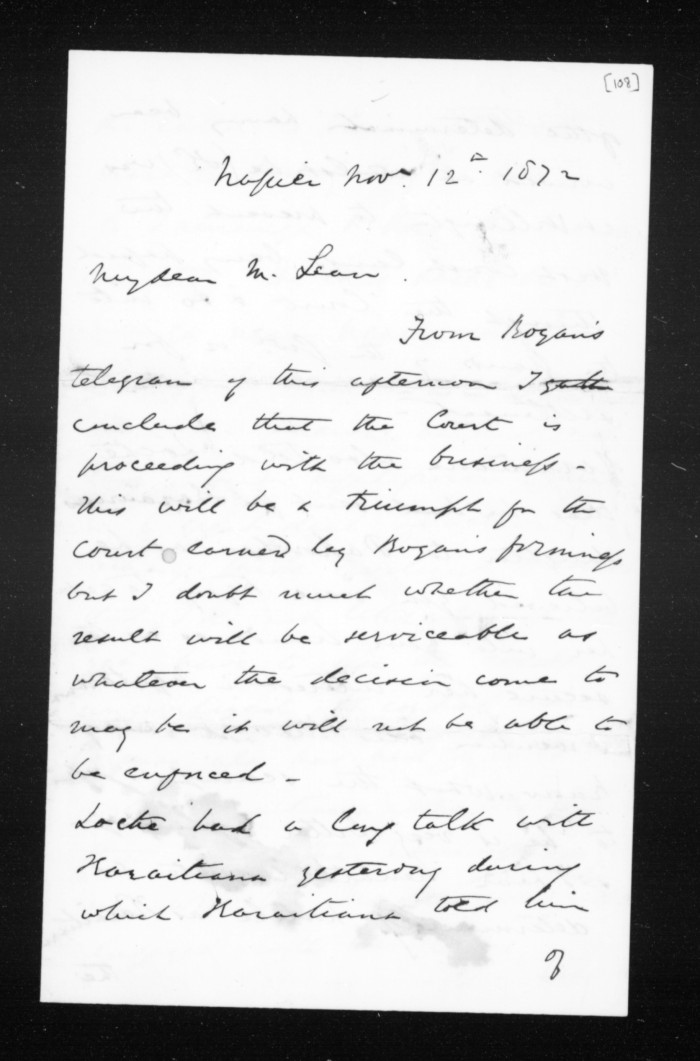 [108]
Napier Novr. 12th. 1872
My dear Mc. Lean.
From Rogan's
telegram of this afternoon I gath
conclude that the Court is
proceeding with the business -
this will be a triumph for the
court earned by Rogan's firmness
but I doubt much whether the
result will be serviceable as
whatever the decision come to
may be it will not be able to
be enforced -
Locke had a long talk with
Karaitiana yesterday during
which Karaitiana told him
of